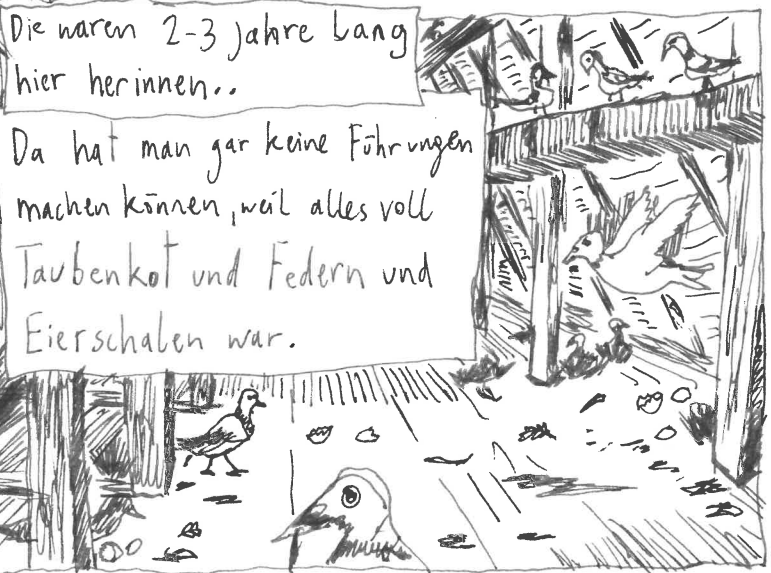 Die waren 2-3 Jahre Lang
hier herinnen..
Da hat man gar keine Führungen
machen können, weil alles voll
Taubenkot und Federn und
Eierschalen war.